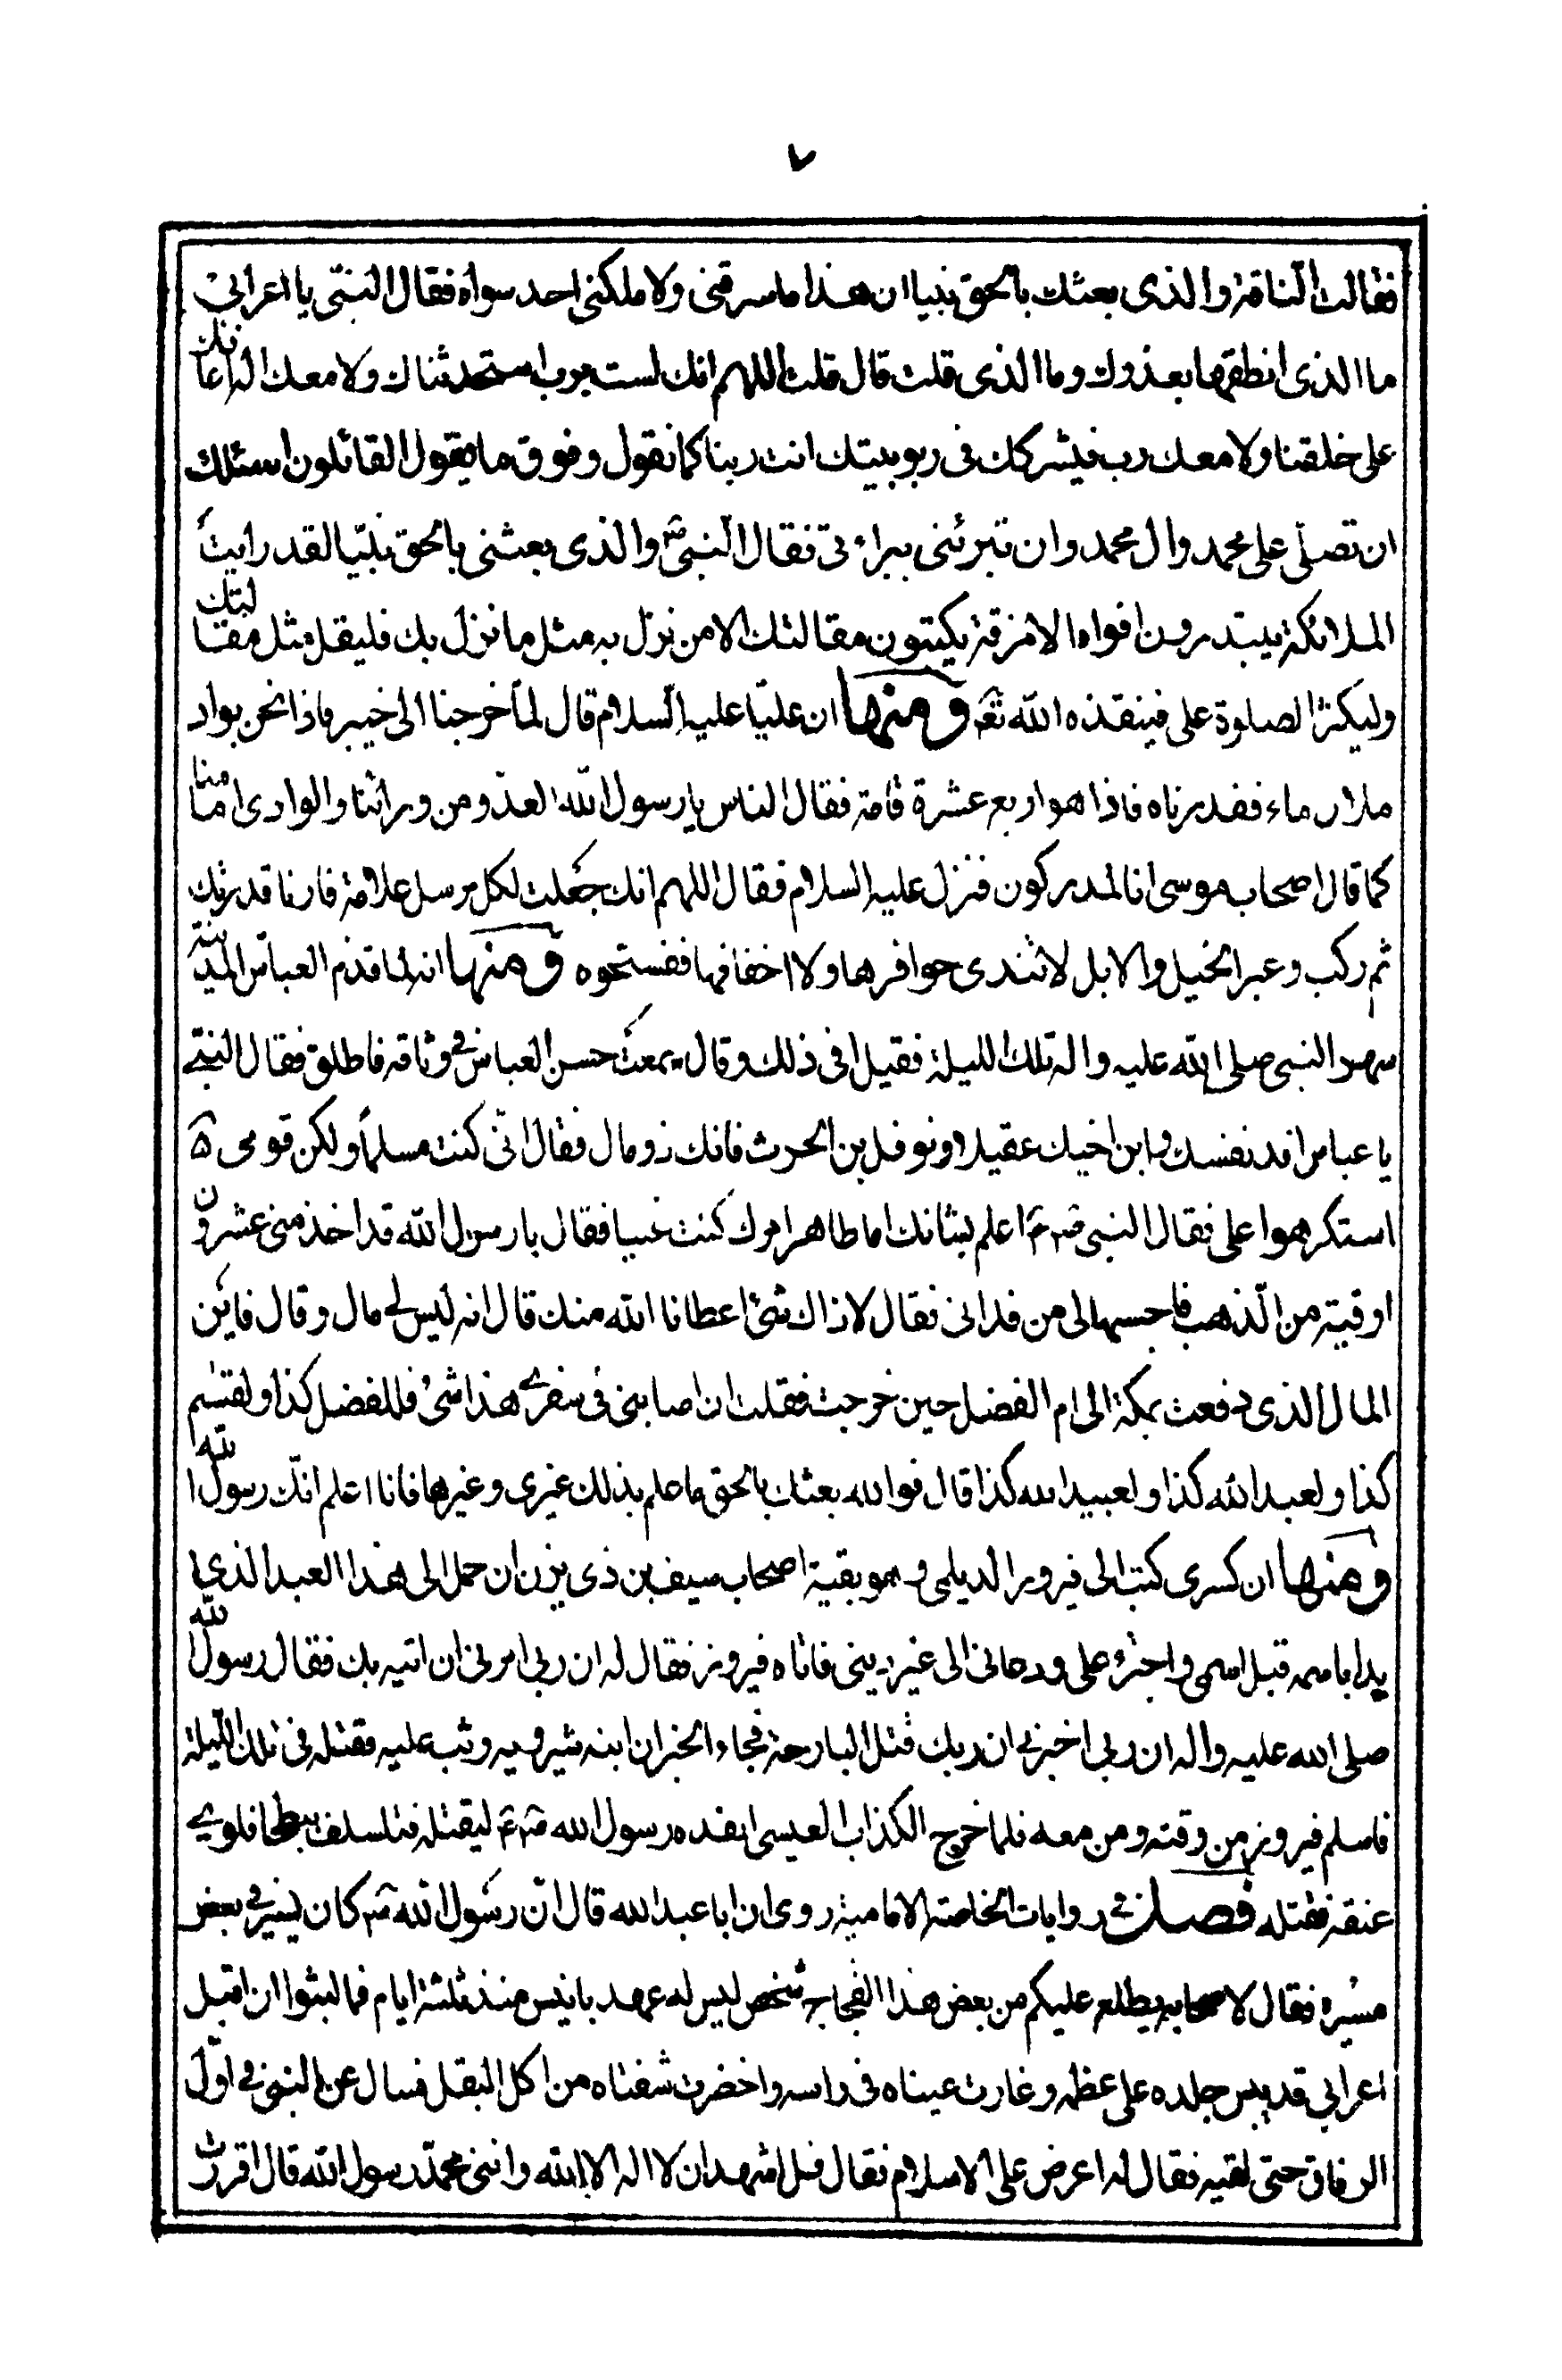 ٧
فقالت الناقة والذى بعثك بالحق نبيا ان هذا ما سرقنى ولا ملكنى احد سواه فقال النبى يا اعرابى
ما الذى انطقها بعذرك وما الذى قلت قال قلت اللهم انك لست برب استحدثناك ولا معك اله اعانك
على خلقنا ولا معك رب فيشركك فى ربوبيتك انت ربنا كما نقول وفوق ما يقول القائلون اسئلك
ان تصلى على محمد وال محمد وان تبرئنى ببراءتى فقال النبى ص والذى بعثنى بالحق نبيا لقد رايت
الملائكة يبتدرون افواه الازقة يكتبون مقالتك الا من نزل به مثل ما نزل بك فليقل مثل مقالتك
وليكثر الصلوة على فينقذه الله تع ومنها ان عليا عليه السلام قال لما خرجنا الى خيبر فاذا نحن بواد
ملاان ماء فقدرناه فاذا هو اربع عشرة قامة فقال الناس يا رسول الله العدو من ورائنا والوادى امامنا
كما قال اصحاب موسى انا لمدركون فنزل عليه السلام فقال اللهم انك جعلت لكل مرسل علامة فارنا قدرتك
ثم ركب وعبر الخيل والابل لا تندى حوافرها ولا اخفافها ففتحوه ومنها انه لما قدم العباس المدينة
سهر النبى صلى الله عليه واله تلك الليلة فقيل فى ذلك وقال سمعت حس العباس فى وثاقه فاطلق فقال النبى
يا عباس افد نفسك وابن اخيك عقيلا ونوفل بن الحرث فانك ذو مال فقال انى كنت مسلما ولكن قومى
استكرهوا على فقال النبى ص اعلم بشانك اما ظاهر امرك كنت علينا فقال يا رسول الله قد اخذ منى عشرون
اوقية من الذهب فاحسبها لى من فدائى فقال لا ذاك شئ اعطانا الله منك قال انه ليس لى مال وقال فاين
المال الذى دفعت بمكة الى ام الفضل حين خرجت فقلت ان اصابنى فى سفرى هذا شئ فللفضل كذا ولقثم
كذا ولعبد الله كذا ولعبيد الله كذا قال فوالله بعثك بالحق ما علم بذلك غيرى وغيرها فانا اعلم انك رسول الله
ومنها ان كسرى كتب الى فيروز الديلمى وهو بقية اصحاب سيف بن ذى يزن ان حمل الى هذا العبد الذى
يبدا باسمه قبل اسمى واجترء على ودعانى الى غير دينى فاتاه فيروز فقال له ان ربى امرنى ان اتيه بك فقال رسول الله
صلى الله عليه واله ان ربى اخبرنى ان ربك قتل البارحة فجاء الخبر ان ابنه شيرويه وثب عليه فقتله فى تلك الليلة
فاسلم فيروز من وقته ومن معه فلما خرج الكذاب العبسى انفده رسول الله ص ليقتله فتسلق سطحا فلوى
عنقه فقتله فصل فى روايات الخاصة الامامية روى ان ابا عبد الله قال ان رسول الله ص كان يسير فى بعض
مسيره فقال لاصحابه يطلع عليكم من بعض هذا الفجاج شخص ليس له عهد بانيس منذ ثلثة ايام فما لبثوا ان اقبل
اعرابى قد يبس جلده على عظمه وغارت عيناه فى راسه واخضرت شفتاه من اكل البقل فسال عن النبى فى اول
الرفاق حتى لقيه فقال له اعرض على الاسلام فقال قل اشهد ان لا اله الا الله واننى محمد رسول الله قال اقررت